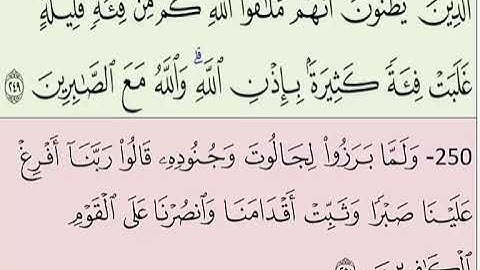 الَّذِينَ يَظُنُّونَ أَنَّهُم مُّلَٰقُوا۟ اللَّهِ كَم مِّن فِئَةٍ قَلِيلَةٍ
غَلَبَتْ فِئَةً كَثِيرَةًۢ بِإِذْنِ اللَّهِ ۗ وَاللَّهُ مَعَ الصَّٰبِرِينَ ﴿٢٤٩﴾
250- وَلَمَّا بَرَزُوا۟ لِجَالُوتَ وَجُنُودِهِۦ قَالُوا۟ رَبَّنَآ أَفْرِغْ
عَلَيْنَا صَبْرًا وَثَبِّتْ أَقْدَامَنَا وَانصُرْنَا عَلَى الْقَوْمِ
الْكَافِرِينَ